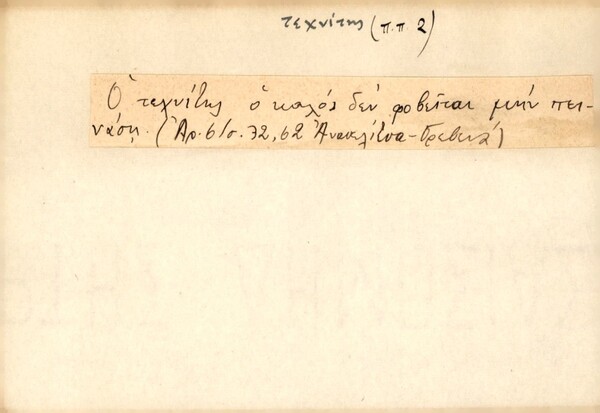 τεχνίτης (π.π. 2)
Ὁ τεχνίτης ὁ καλός δέν φοβεῖται μήν πει-
νάσῃ. (Ἀρ. 6 σ. 32, 62 Ἀνακλίτσα - Γρεβενά)